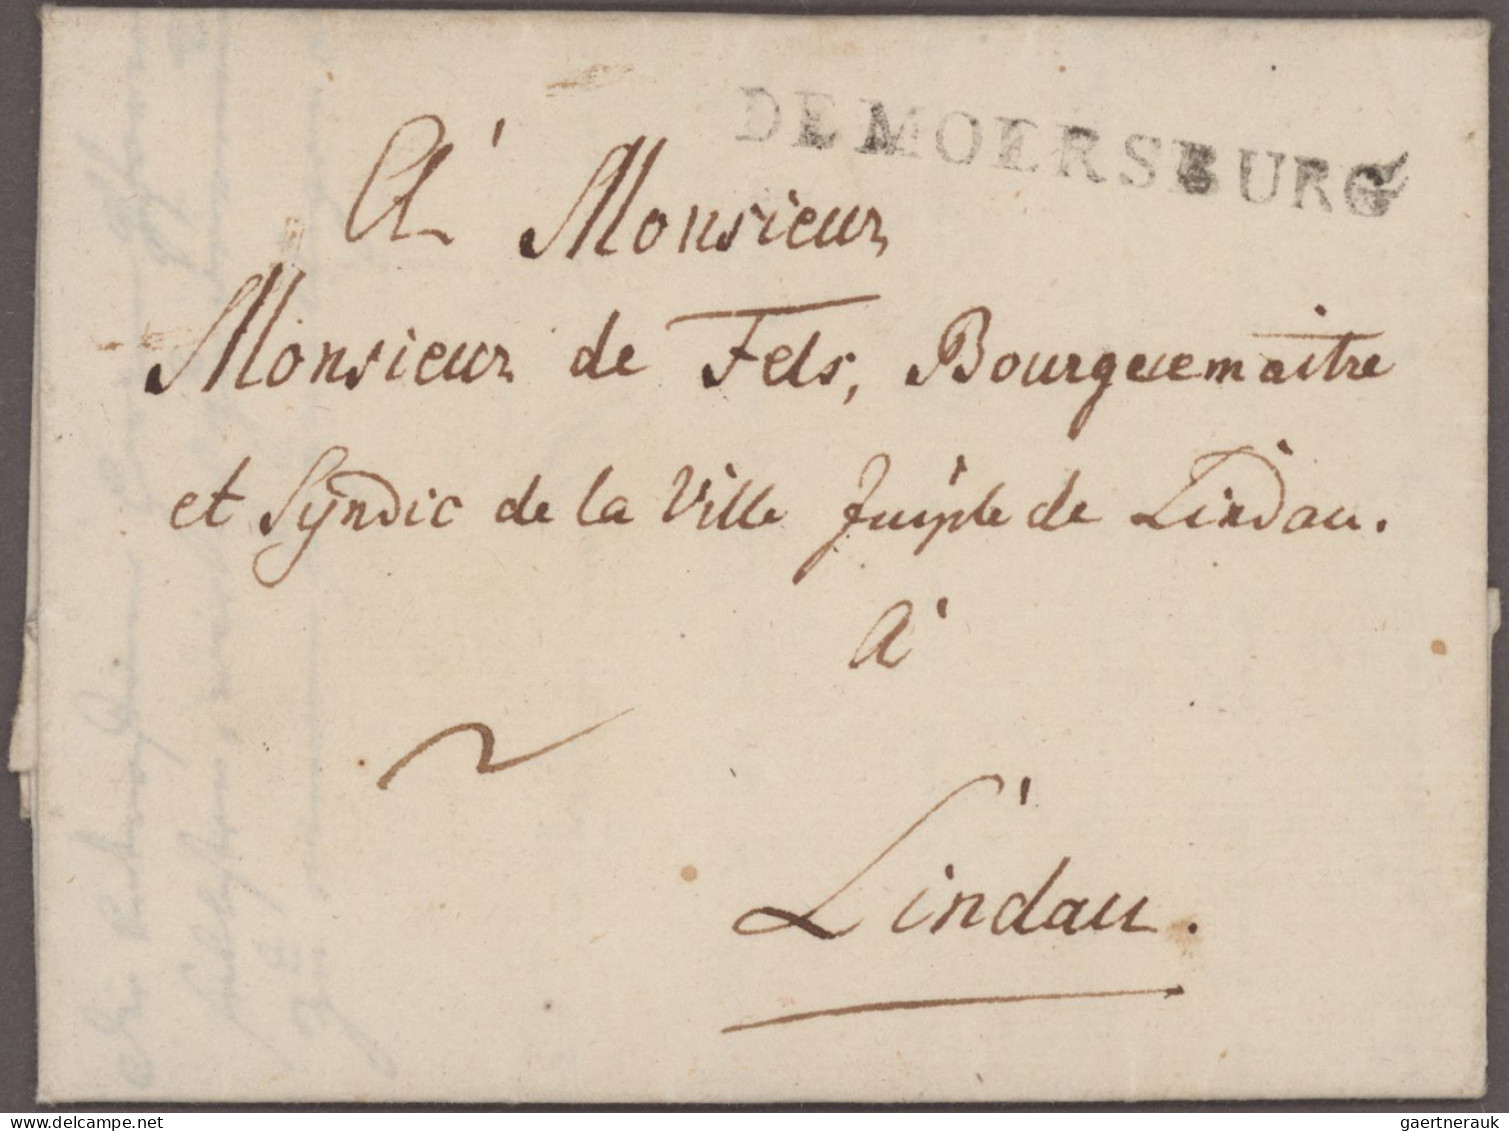 DE MOERSBURG
A' Monsieur
Monsieur de Fels, Bourguemaitre
et Syndic de la Ville de Lindau.
à
Lindau.
gaertnerauk
www.delcampe.net